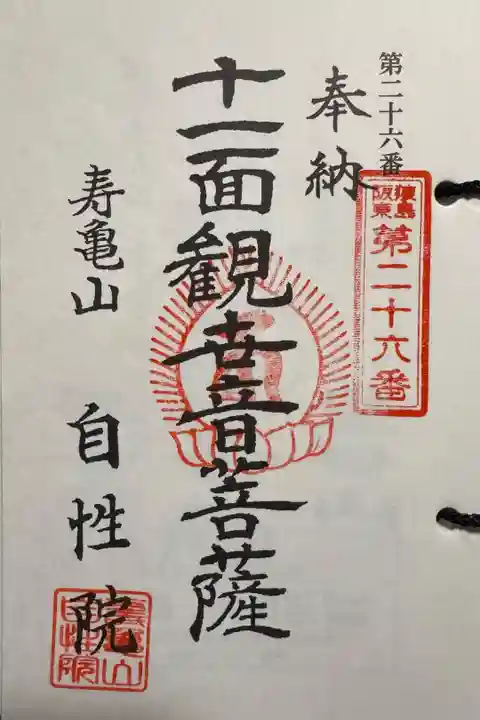 第二十六番
奉納
猿島
阪東
第二十六番
十一面観世音菩薩
寿亀山 自性院
壽龜山
自性院